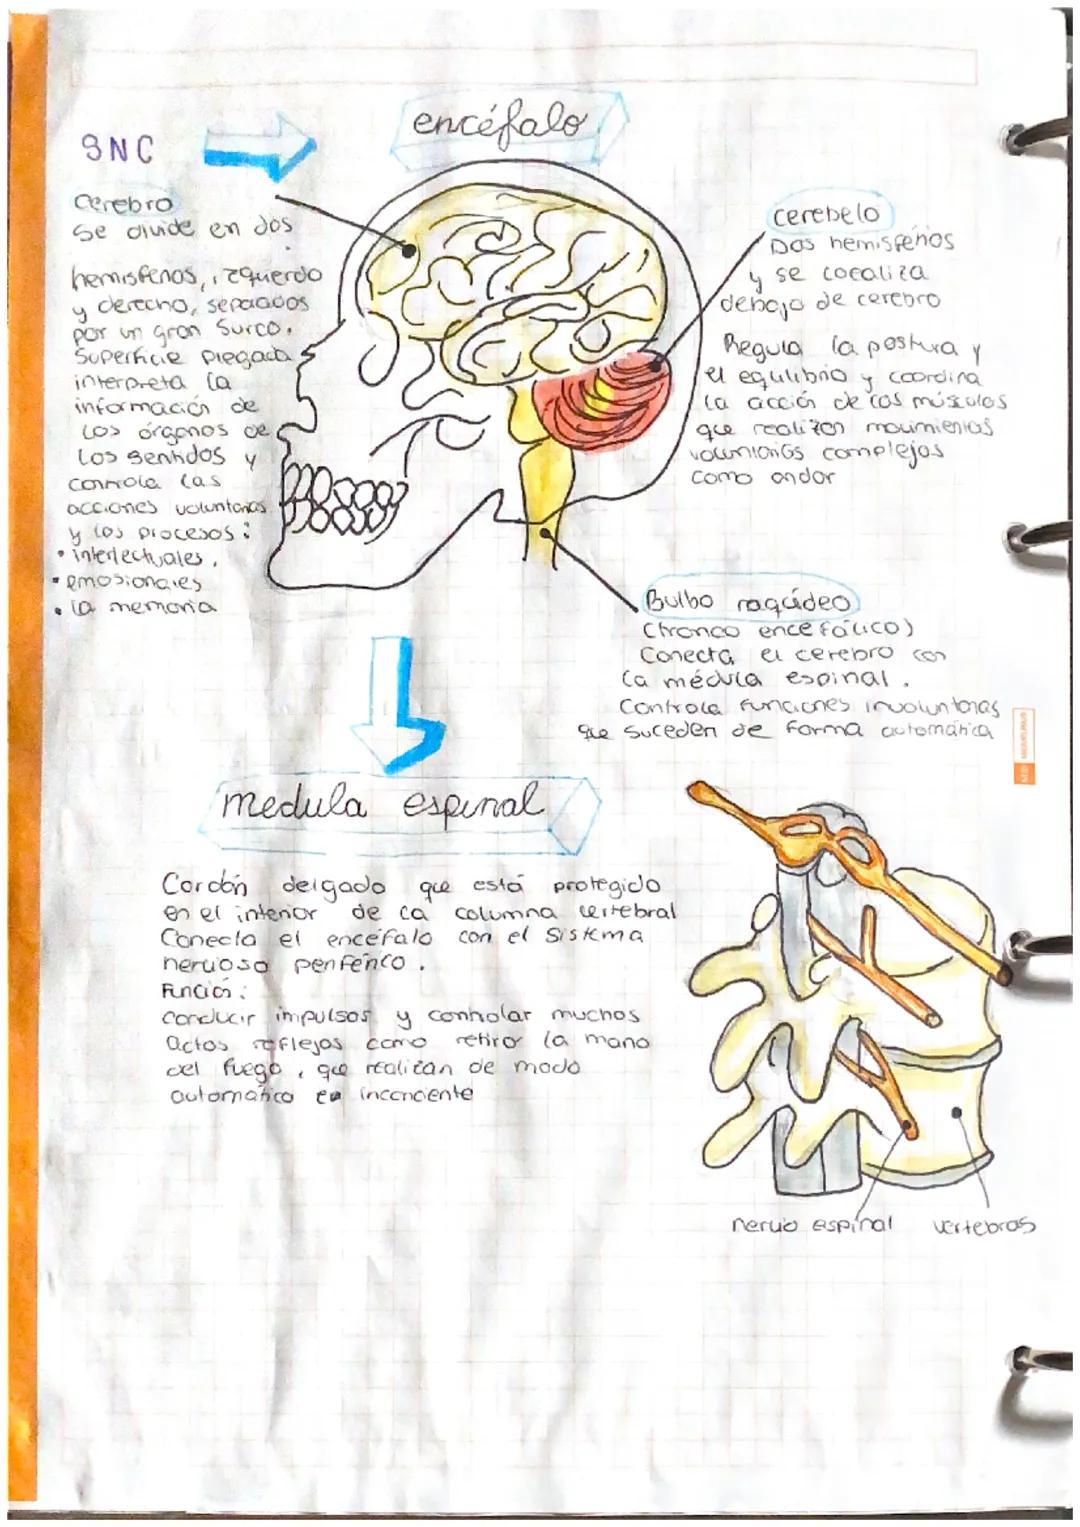 SNC
encéfalo
cerebro
se divide en dos
hemisferios, izquierdo
y derecho, separados
por un gran surco.
Superficie plegada
interpreta la
información de
los órganos de
los sentidos y
controla las
acciones voluntarias
y los procesos:
• intelectuales.
• emosionales
• la memoria
cerebelo
Dos hemisferios
y se localiza
debajo de cerebro
Regula la postura y
el equilibrio y coordina
la acción de los músculos
que realizan movimientos
voluntarios complejos
como andar
Bulbo raquídeo
(tronco encefálico)
Conecta el cerebro con
la médula espinal.
Controla funciones involuntarias
que suceden de forma automática
medula espinal
Cordón delgado que está protegido
en el interior de la columna vertebral
Conecta el encéfalo con el sistema
nervioso periférico.
Función:
conducir impulsos y controlar muchos
actos reflejos como retiro la mano
del fuego, que realizan de modo
automático e inconciente
nervio espinal vertebras